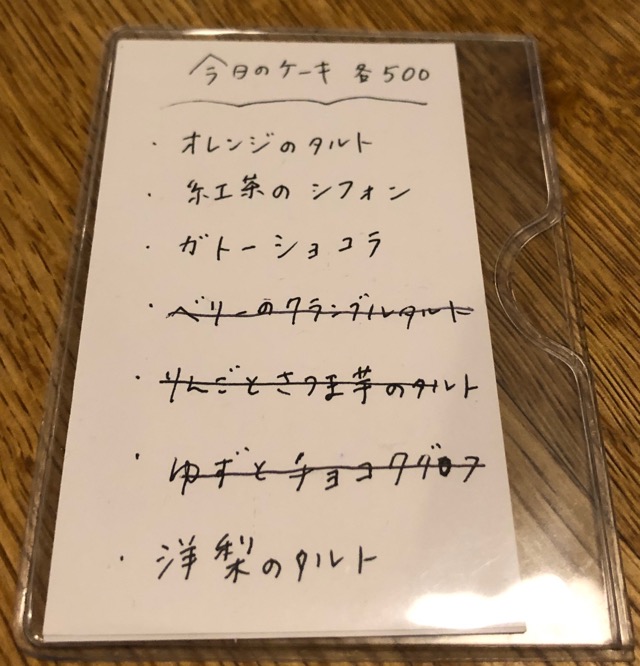 今日のケーキ 各500
・オレンジのタルト
・紅茶のシフォン
・ガトーショコラ
・ベリーのクランブルタルト
・りんごとさつま芋のタルト
・ゆずとチョコクグロフ
・洋梨のタルト